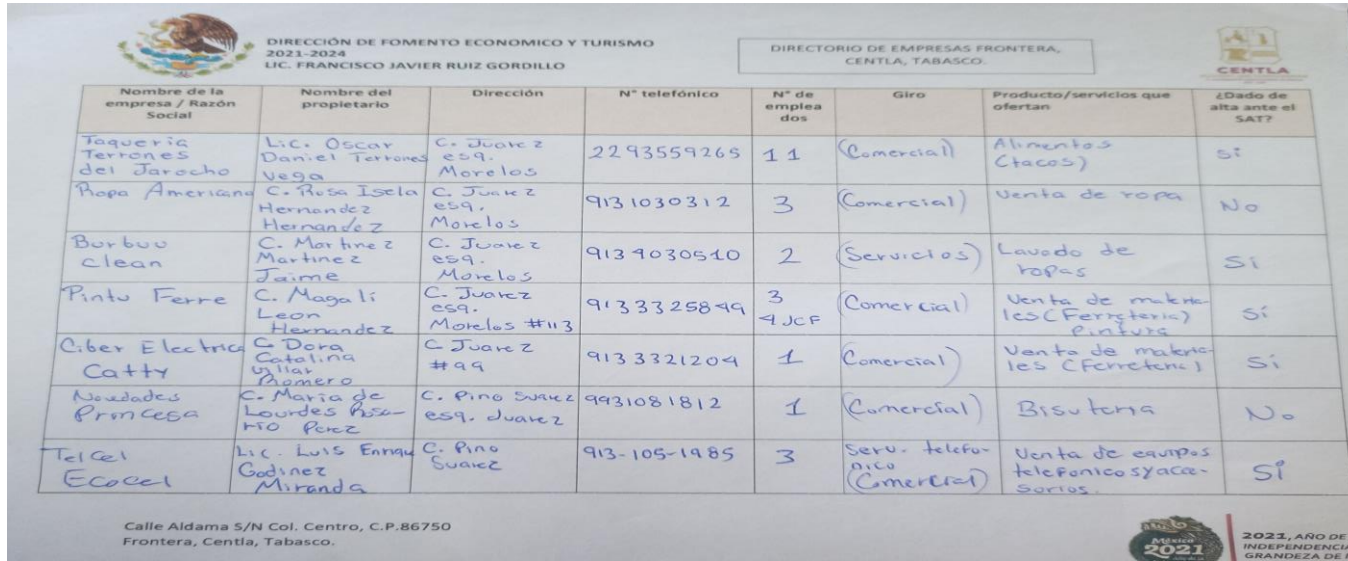 DIRECCIÓN DE FOMENTO ECONOMICO Y TURISMO
2021-2024
LIC. FRANCISCO JAVIER RUIZ GORDILLO
DIRECTORIO DE EMPRESAS FRONTERA,
CENTLA, TABASCO.
CENTLA
Nombre de la empresa / Razón Social
Nombre del propietario
Dirección
N° telefónico
N° de emplea dos
Giro
Producto/servicios que ofertan
¿Dado de alta ante el SAT?
Taqueria Terrones del Jarocho
Lic. Oscar Daniel Terrones Vega
C. Juarez esq. Morelos
2293559265
11
(Comercial)
Alimentos (tacos)
Si
Ropa Americana
C. Rosa Isela Hernandez Hernandez
C. Juarez esq. Morelos
9131030312
3
(Comercial)
Venta de ropa
No
Burbuu clean
C. Martinez Martinez Jaime
C. Juarez esq. Morelos
9139030510
2
(Servicios)
Lavado de ropas
Si
Pintu Ferre
C. Magali Leon Hernandez
C. Juarez esq. Morelos #113
9133325849
3
4 JCF
(Comercial)
Venta de materiales (Ferreteria) Pintura
Sí
Ciber Electrica Catty
C Dora Catalina Villar Romero
C Juarez #99
9133321204
1
(Comercial)
Venta de materiales (Ferreteria)
Si
Novedades Princesa
C. Maria de Lourdes Rosario Perez
C. Pino Suarez esq. Juarez
9931081812
1
(Comercial)
Bisuteria
No
Telcel Ecocel
Lic. Luis Enriqu Godinez Miranda
C. Pino Suarez
913-105-1985
3
Serv. telefonico (Comercial)
Venta de equipos telefonicos y accesorios.
Sí
Calle Aldama S/N Col. Centro, C.P.86750
Frontera, Centla, Tabasco.
México
2021
2021, AÑO DE
INDEPENDENCIA
GRANDEZA DE